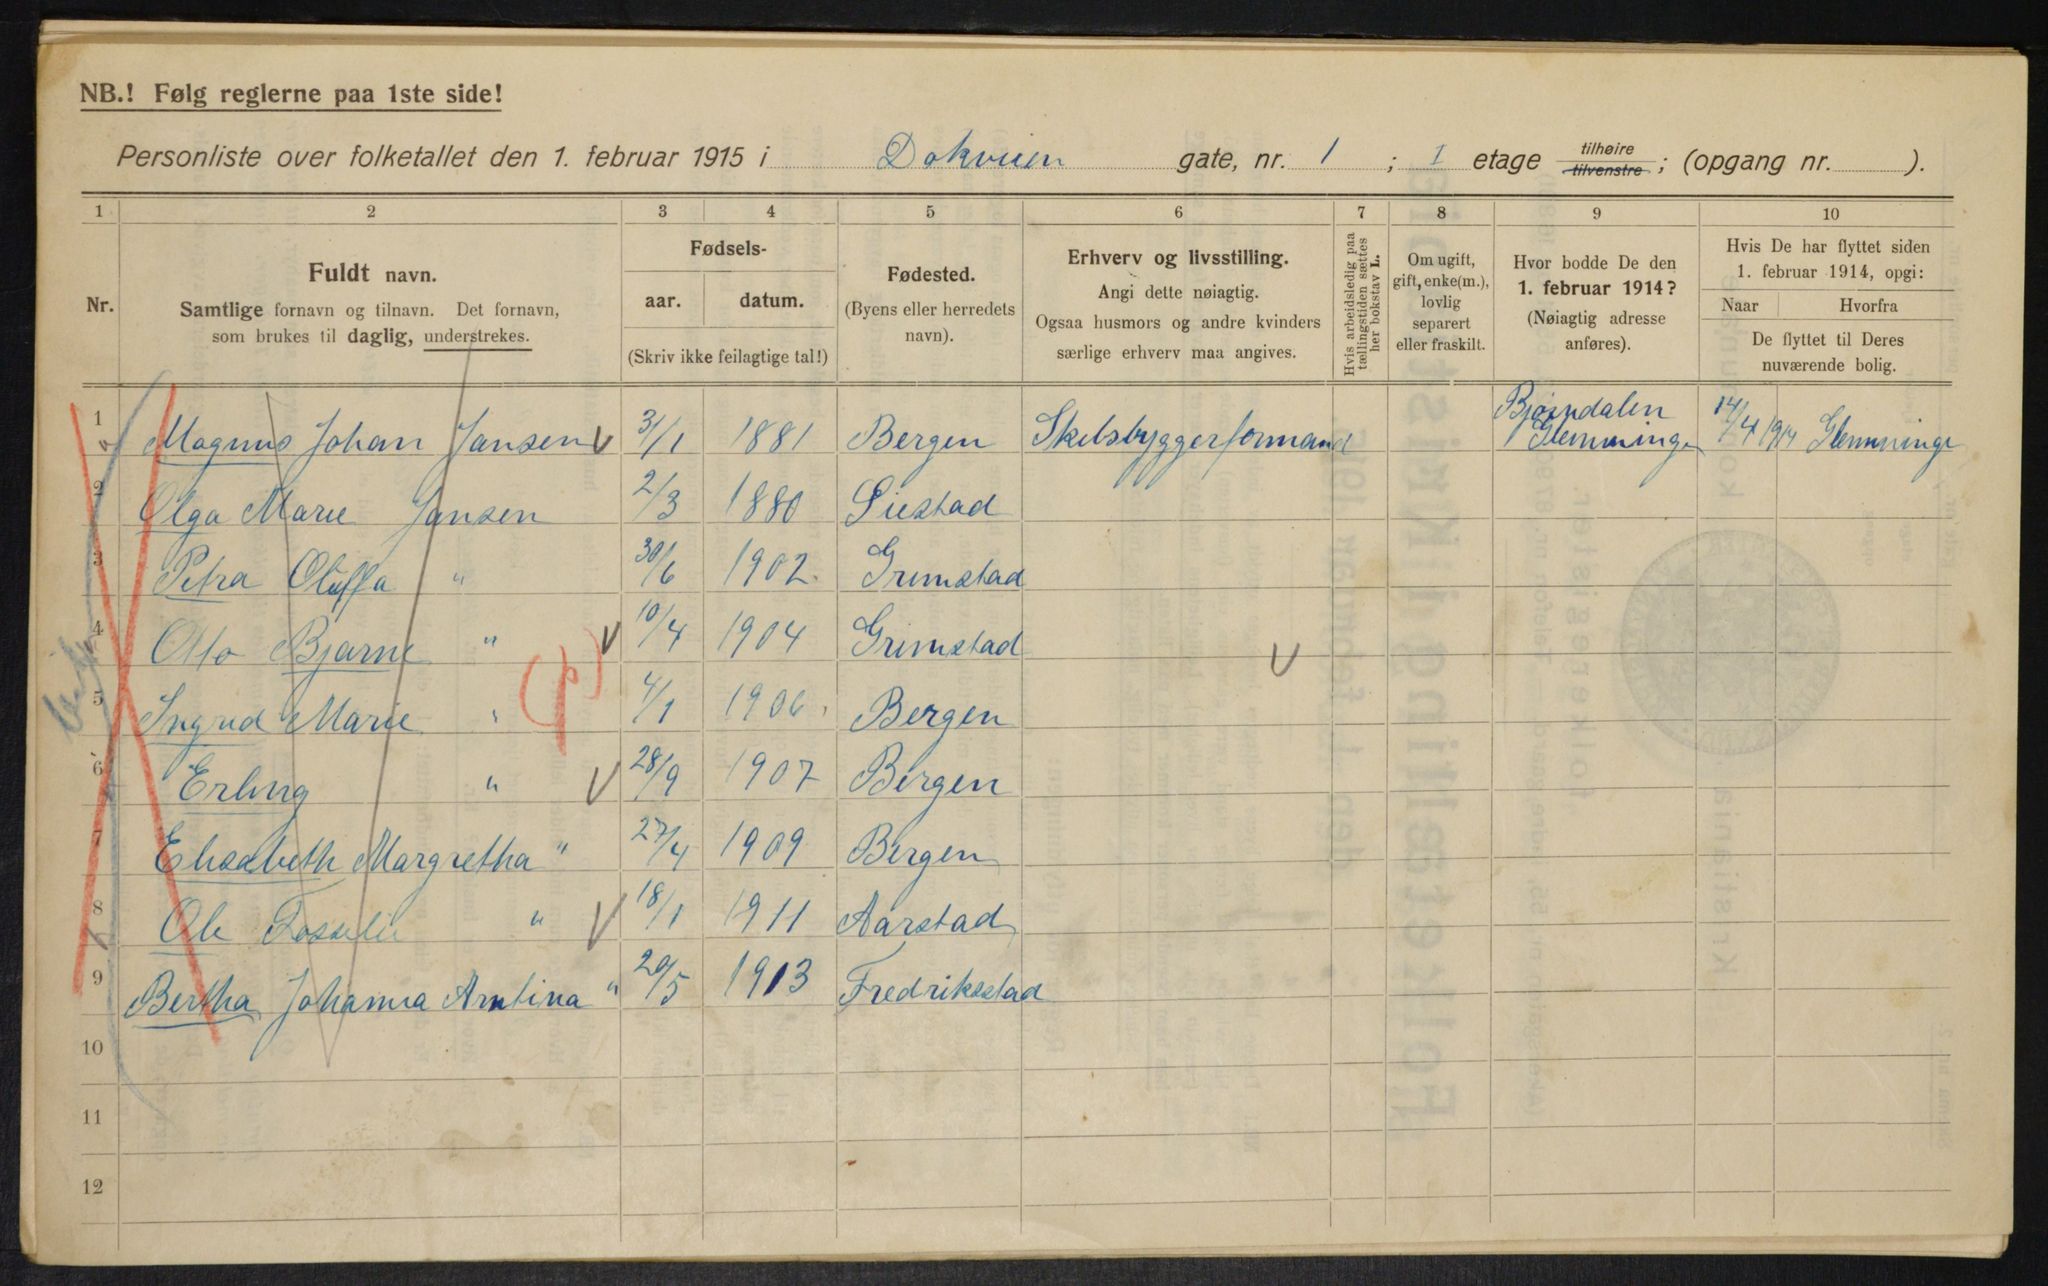 NB.! Følg reglerne paa 1ste side!
Personliste over folketallet den 1. februar 1915 i Dokveien gate, nr. 1 ; I etage tilhøire tilvenstre ; (opgang nr. ).
1 2 3 4 5 6 7 8 9 10
Nr.
Fuldt navn.
Samtlige fornavn og tilnavn. Det fornavn,
som brukes til daglig, understrekes.
Fødsels-
aar. datum.
(Skriv ikke feilagtige tal!)
Fødested.
(Byens eller herredets
navn).
Erhverv og livsstilling.
Angi dette nøiagtig.
Ogsaa husmors og andre kvinders
særlige erhverv maa angives.
Hvis arbeidsledig paa
tællingstiden sættes
her bokstav L.
Om ugift,
gift, enke(m.),
lovlig
separert
eller fraskilt.
Hvor bodde De den
1. februar 1914?
(Nøiagtig adresse
anføres).
Hvis De har flyttet siden
1. februar 1914, opgi:
Naar Hvorfra
De flyttet til Deres
nuværende bolig.
1 Magnus Johan Jansen 31/1 1881 Bergen Skibsbyggerformand Bjørndalen Glemminge 14/4 1914 Glemminge
2 Olga Marie Jansen 2/3 1880 Siestad
3 Petra Oluffa " 30/6 1902. Grimstad
4 Otto Bjarne " 10/4 1904 Grimstad
5 Ingrid Marie " 4/1 1906 Bergen
6 Erling " 28/9 1907 Bergen
7 Elisabeth Margretha " 27/4 1909 Bergen
8 Ole " 18/1 1911 Aarstad
9 Bertha Johanna Arntina " 20/5 1913 Fredriksstad
10
11
12